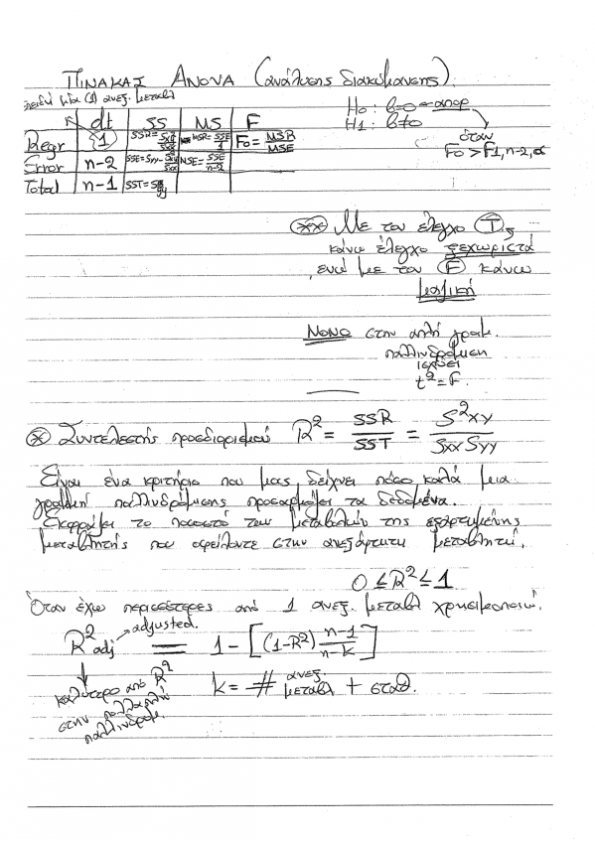 ΠΙΝΑΚΑΣ ANOVA (ανάλυσης διακύμανσης).
επειδή μία (1) ανεξ. μεταβλ
df SS MS F
Regr {1} SSR = S²xy/Sxx MSR = SSR/1 F0 = MSR/MSE
Error n-2 SSE = Syy - S²xy/Sxx MSE = SSE/n-2
Total n-1 SST = Syy
H0: b=0 → απορ
H1: b≠0
όταν
F0 > F1,n-2,α
(**) Με τον έλεγχο (T)
κάνω έλεγχο ξεχωριστά
, ενώ με τον (F) κάνω
μαζική
ΜΟΝΟ στην απλή γραμ.
παλλινδρόμηση
ισχύει
t² = F.
(*) Συντελεστής προσδιορισμού R² = SSR/SST = S²xy/SxxSyy
Είναι ένα κριτήριο που μας δείχνει πόσο καλά μια
γραμμή παλλινδρόμησης προσαρμόζει τα δεδομένα.
Εκφράζει το ποσοστό των μεταβολών της εξαρτημένης
μεταβλητής που οφείλοντε στην ανεξάρτητη μεταβλητή.
0 ≤ R² ≤ 1
Όταν έχω περισσότερες από 1 ανεξ. μεταβλ χρησιμοποιώ.
R²adj → adjusted. = 1 - [(1-R²) n-1/n-k]
καλύτερο από R²
στην πολλαπλή
παλλινδρομ.
k = # ανεξ. μεταβλ + σταθ.